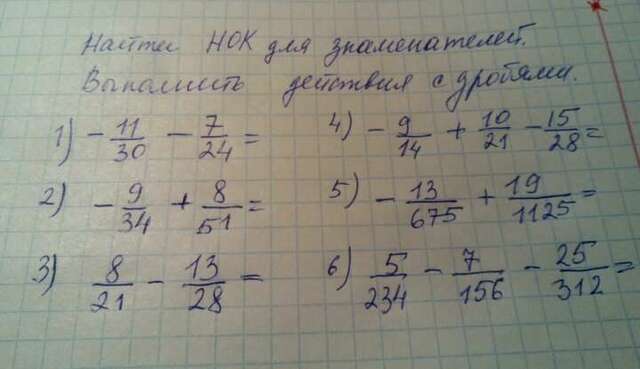 Найти НОК для знаменателей.
Выполнить действия с дробями.
1) - 11/30 - 7/24 =
4) - 9/14 + 10/21 - 15/28 =
2) - 9/34 + 8/51 =
5) - 13/675 + 19/1125 =
3) 8/21 - 13/28 =
6) 5/234 - 7/156 - 25/312 =